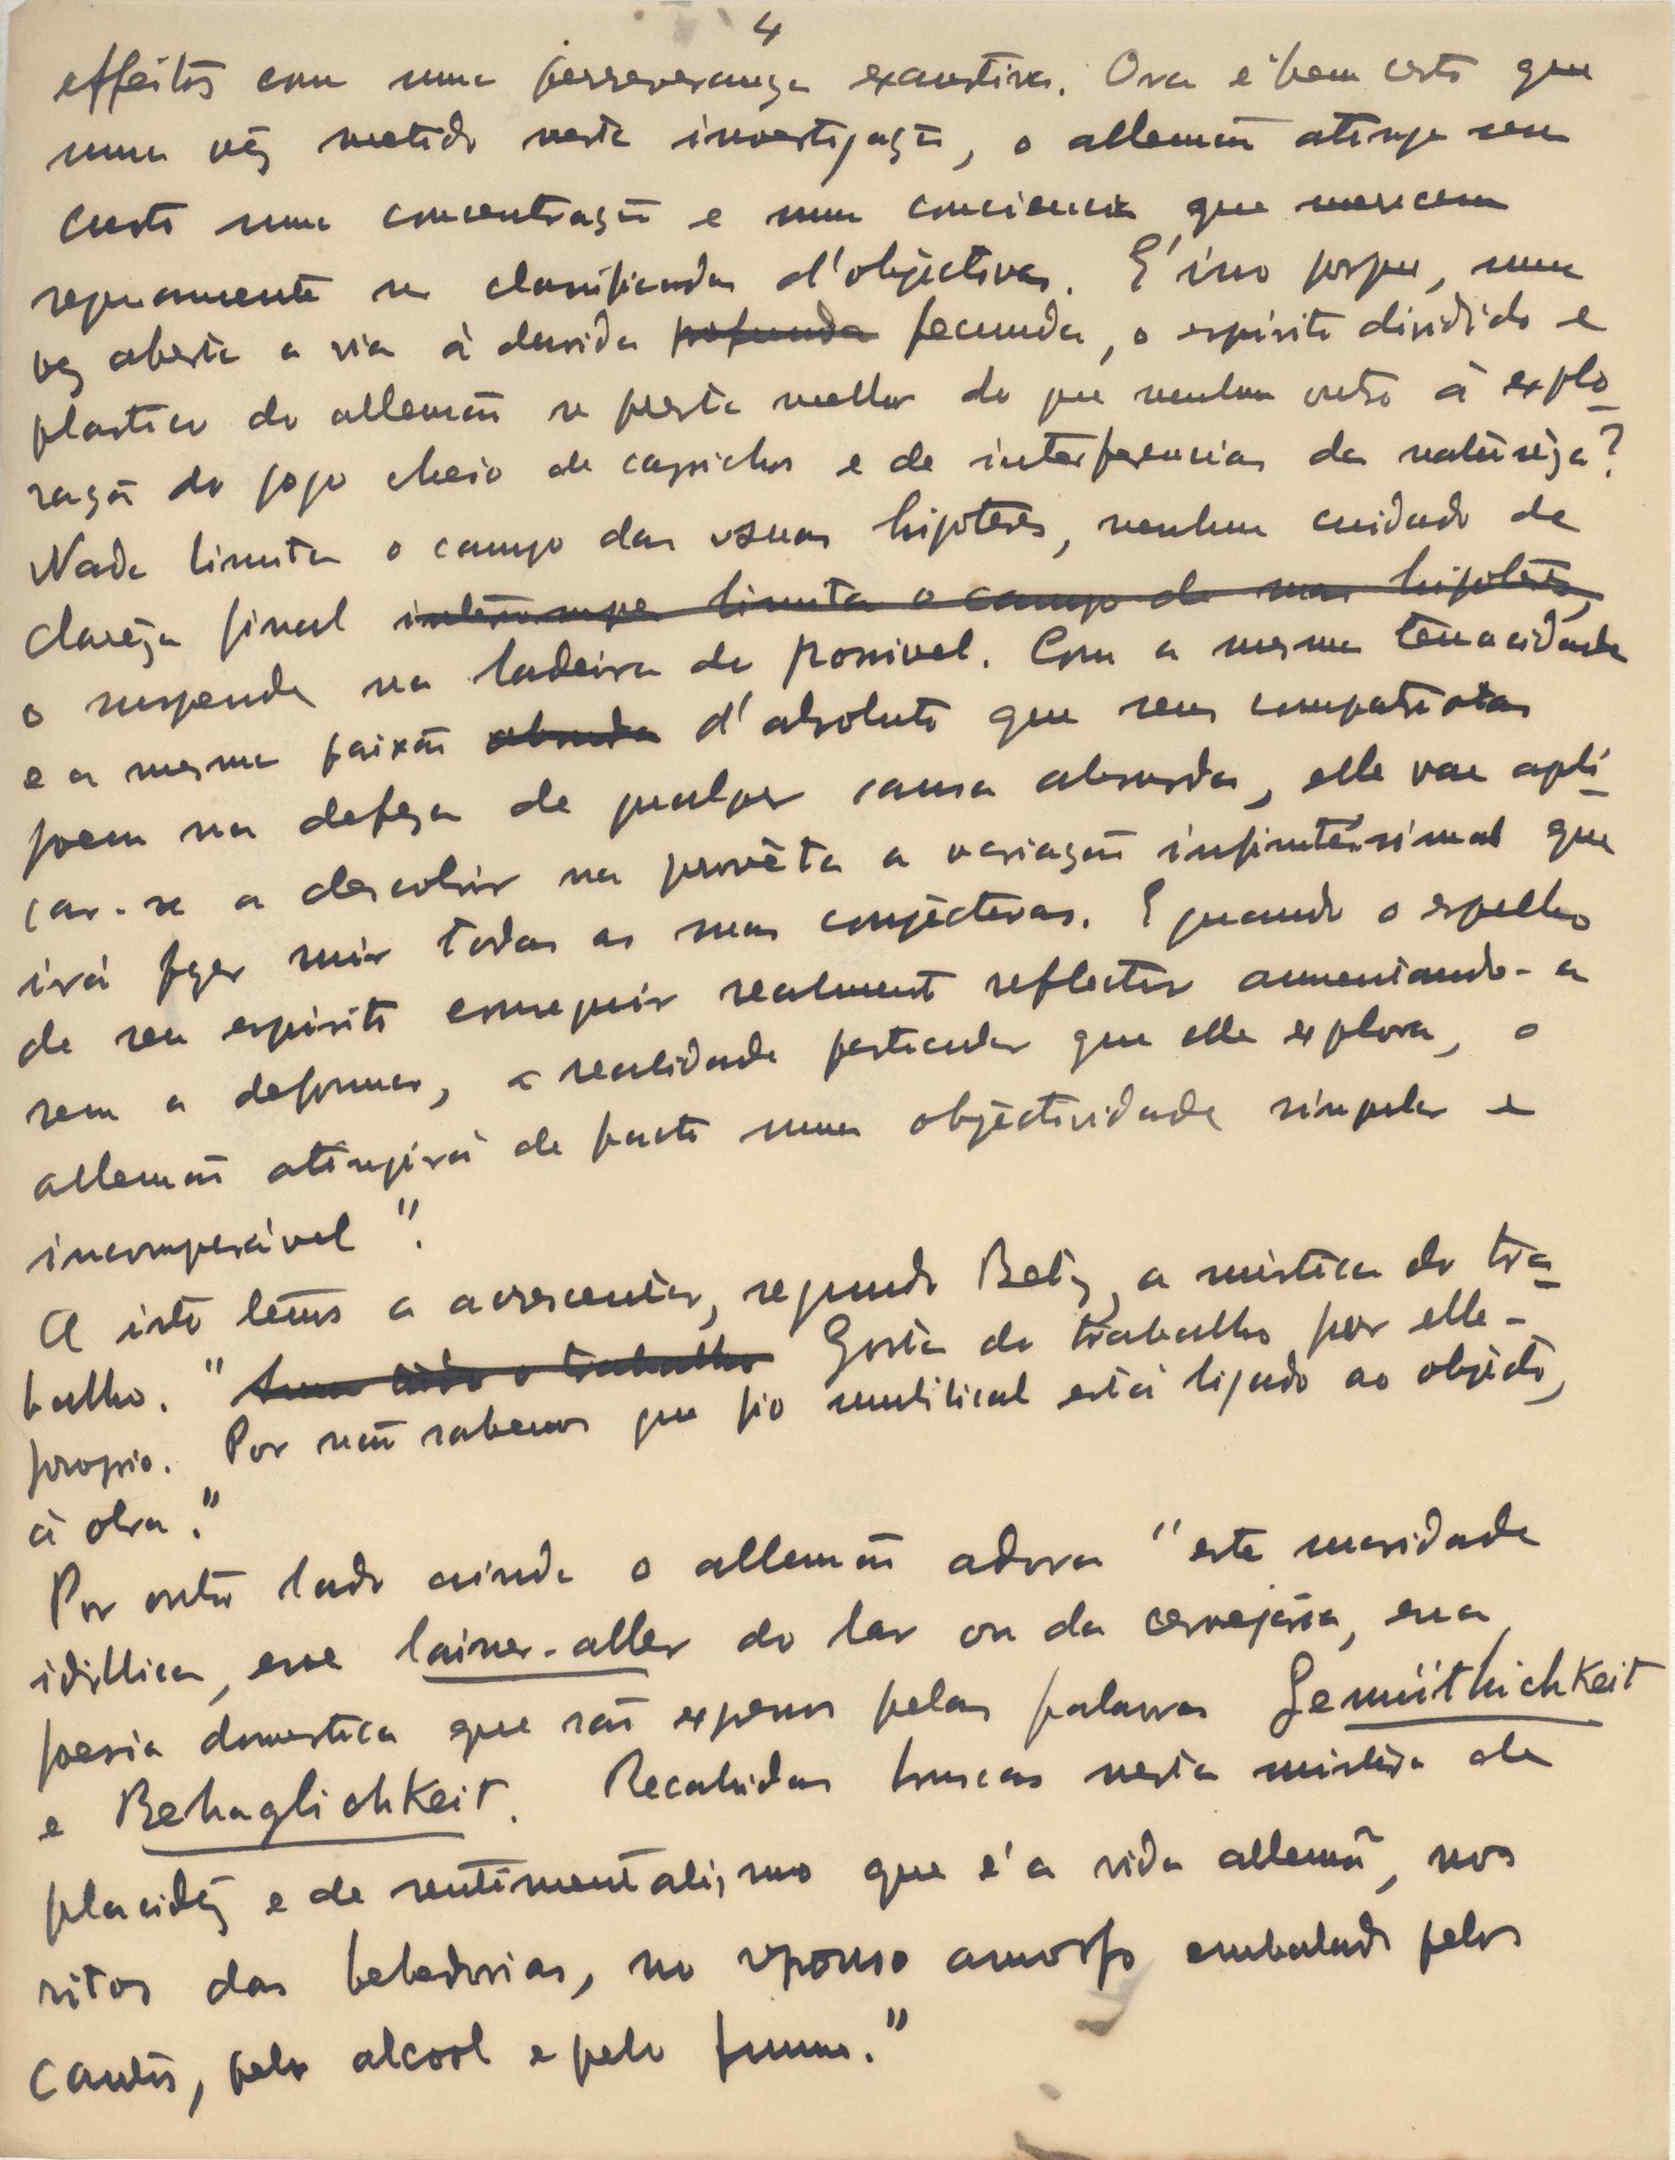 4
effeitos com uma perseverança exaustiva. Ora é bem certo que
uma vêz metido nesta investigação, o allemão atinge sem
custo uma concentração e uma conciencia que merecem
seguramente ser classificadas d'objectivas. E' isso porque, uma
vez aberta a via à duvida profunda fecunda, o espirito dividido e
plastico do allemão se presta melhor do que nenhum outro à explo-
ração do jogo cheio de caprichos e de interferencias da naturêza?
Nada limita o campo das suas hipoteses, nenhum cuidado de
clarêza final interrompe limita o campo de suas hipoteses,
o suspende na ladeira do possivel. Com a mesma tenacidade
e a mesma paixão absurda d'absoluto que seus compatriotas
poem na defeza de qualquer causa absurda, elle vae apli-
car-se a descobrir na provêta a variação infinitésimal que
irá fazer ruir todas as suas conjecturas. E quando o espelho
de seu espirito conseguir realmente reflectir aumentando-a
sem a deformar, a realidade particular que elle explora, o
allemão atingirá de facto uma objectividade singular e
incomparável".
A isto temos a acrescentar, segundo Betz, a mistica do tra-
balho. "Ama tudo o trabalho Gosta do trabalho por elle-
proprio. Por não sabemos que fio umbilical está ligado ao objecto,
à obra."
Por outro lado ainda o allemão adora "esta suavidade
idillica, esse laisser-aller do lar ou da cervejaria, essa
poesia domestica que são expressos pelas palavras Gemüthichkeit
e Behaglichkeit. Recahidas bruscas nesta mistura de
placidêz e de sentimentalismo que é a vida allemã, nos
ritos das bebedorias, no repouso amorfo embalado pelos
cantos, pelo alcool e pelo fumo."